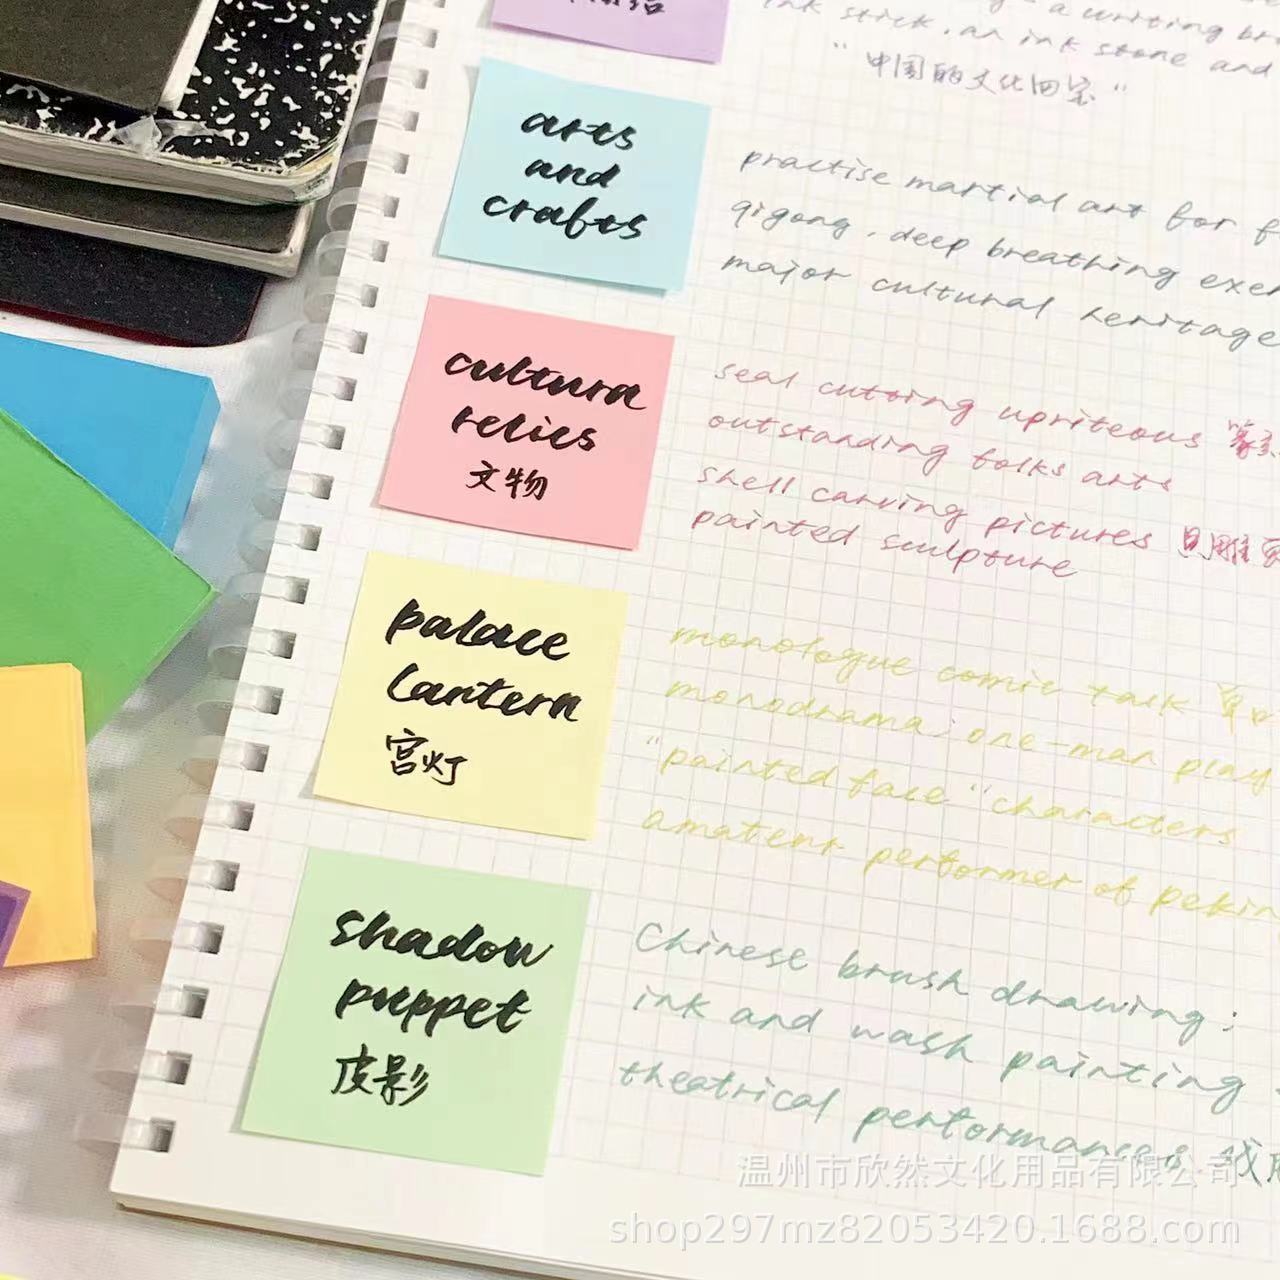 a writing br
ink stick, an ink stone and
"中国的文化四宝"
arts
and
crafts
practise martial art for f
qigong, deep breathing exer
major cultural heritage
cultura
relics
文物
seal cutting upriteous 篆刻
outstanding folks arts
shell carving pictures 贝雕
painted sculpture
palace
lantern
宫灯
monologue comic talk 单口
monodrama; one-man play
"painted face" characters
amateur performer of pekin
shadow
puppet
皮影
Chinese brush drawing;
ink and wash painting
theatrical performances 戏
温州市欣然文化用品有限公司
shop297mz82053420.1688.com